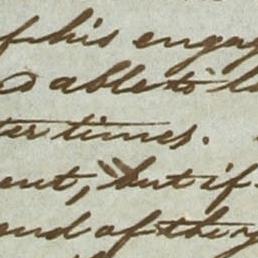 of his engag
able to
ter times.
ent, but if
end of the y